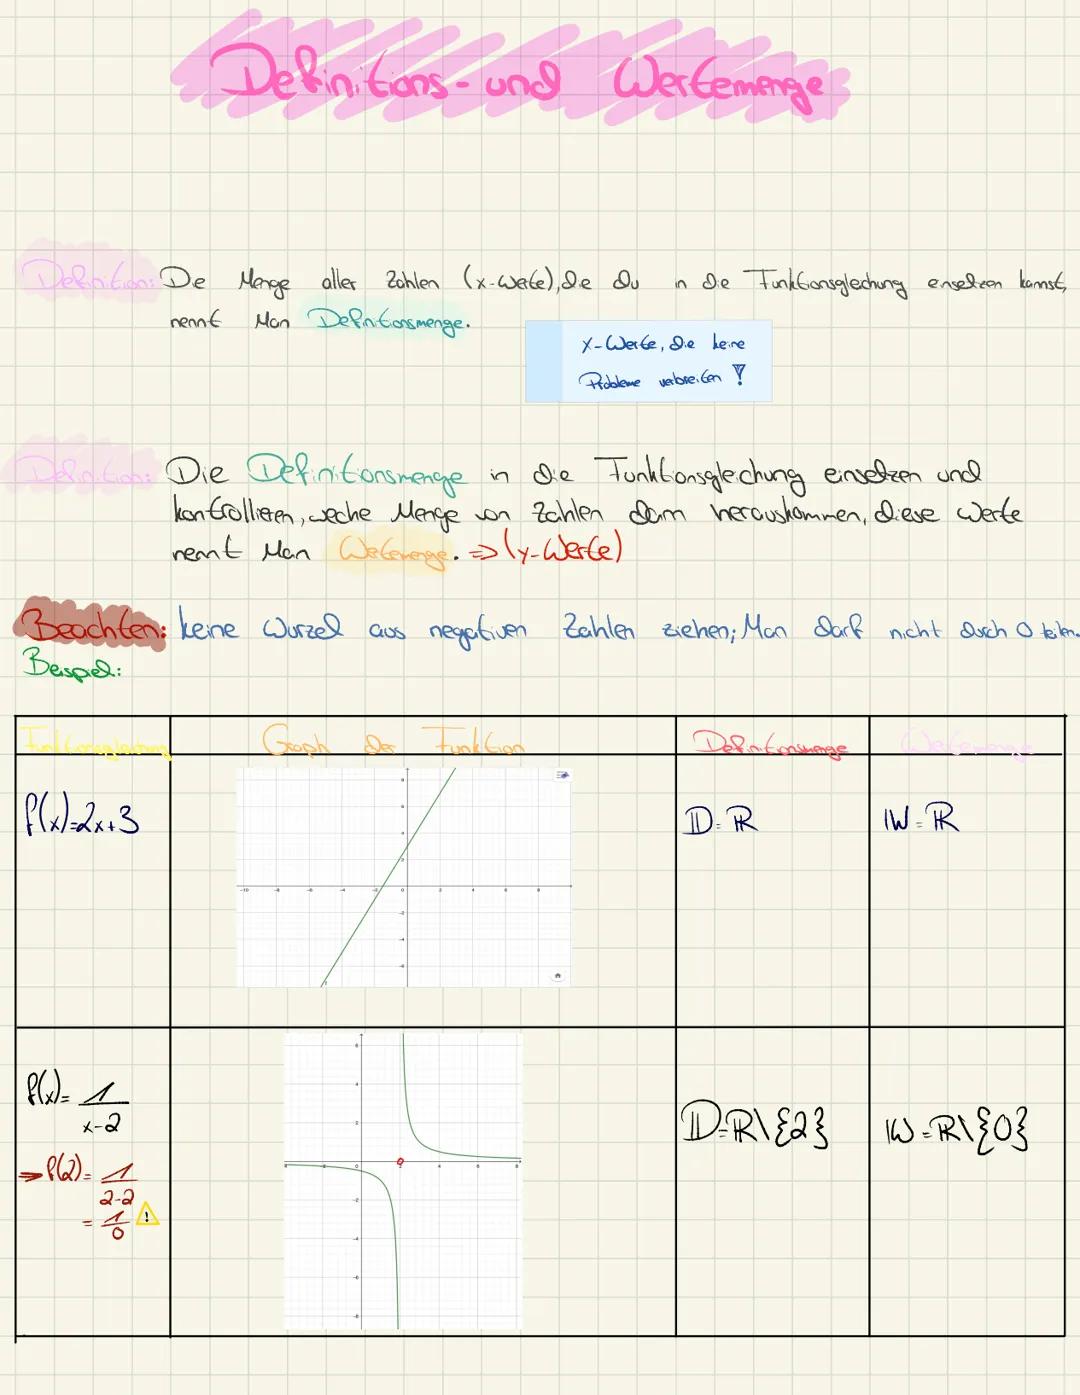 Definitions- und Wertemenge
Definition: Die Menge aller Zahlen (x-Werte), die du in die Funktionsgleichung einsetzen kannst,
nennt Man Definitionsmenge.
x-Werte, die keine
Probleme verbreiten !
Definition: Die Definitionsmenge in die Funktionsgleichung einsetzen und
kontrollieren, weche Menge von Zahlen dann herauskommen, diese Werte
nennt Man Wertemenge. => (y-Werte)
Beachten: keine Wurzel aus negativen Zahlen ziehen; Man darf nicht durch 0 teilen.
Beispiel:
Funktionsgleichung Graph der Funktion Definitionsmenge Wertemenge
f(x)=2x+3 D=ℝ W=ℝ
f(x)= 1/(x-2) D=ℝ\{2} W=ℝ\{0}
=> f(2)= 1/(2-2)
= 1/0 !